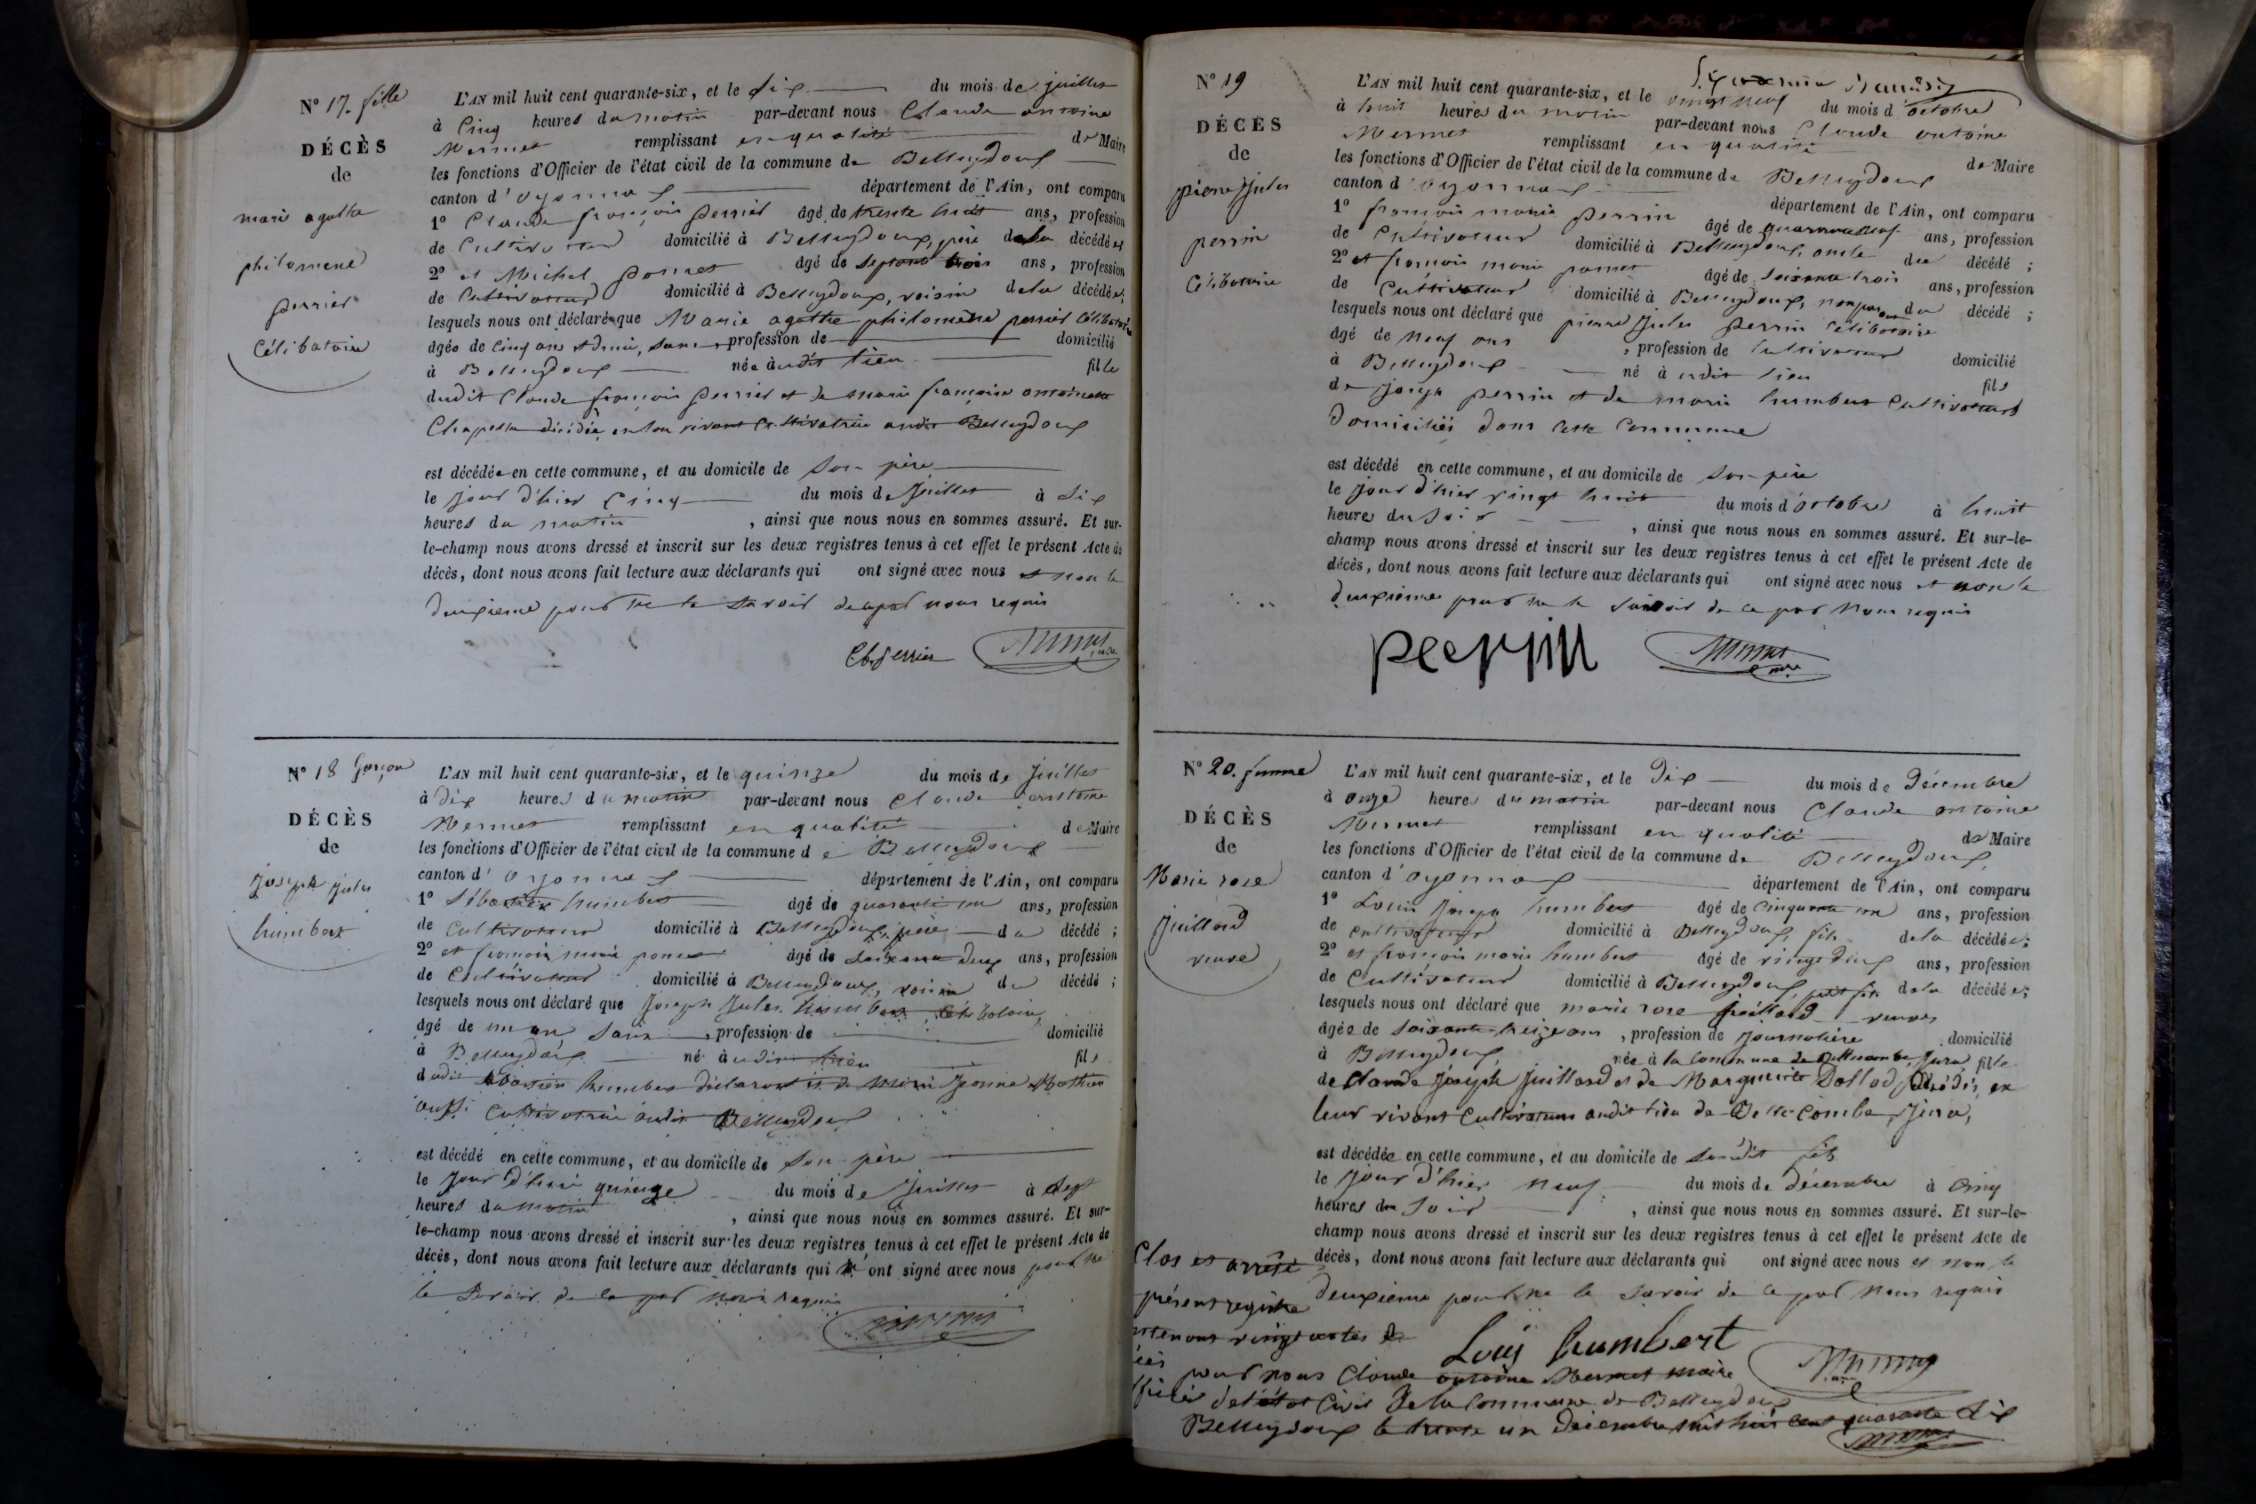 N° 17. fille
DÉCÈS
de
marie agathe
philomene
perrier
Célibataire
L'AN mil huit cent quarante-six, et le six du mois de juillet
à Cinq heures du matin par-devant nous Claude antoine
Mermet remplissant en qualité de Maire
les fonctions d'Officier de l'état civil de la commune de Belleydoux
canton d'oyonnax département de l'Ain, ont comparu
1° Claude françois perrier âgé de trente huit ans, profession
de Cultivateur domicilié à Belleydoux, père de la décédée
2° et Michel poncet âgé de septante trois ans, profession
de Cultivateur domicilié à Belleydoux, voisin de la décédée;
lesquels nous ont déclaré que Marie agathe philomène perrier Célibataire
âgée de cinq ans et demi, sans profession de domicilié
à Belleydoux née audit lieu fille
dudit Claude françois perrier et de marie françoise antoinette
Chapelu décédée, en son vivant Cultivatrice audit Belleydoux
est décédée en cette commune, et au domicile de son père
le jour d'hier Cinq du mois de Juillet à dix
heures du matin, ainsi que nous nous en sommes assuré. Et sur-
le-champ nous avons dressé et inscrit sur les deux registres tenus à cet effet le présent Acte de
décès, dont nous avons fait lecture aux déclarants qui ont signé avec nous et non le
deuxieme pour ne le savoir de ce par nous requis
Cl. f. perrier Mermet maire
N° 18 Garçon
DÉCÈS
de
Joseph jules
humbert
L'AN mil huit cent quarante-six, et le quinze du mois de Juillet
à dix heures du matin par-devant nous Claude antoine
Mermet remplissant en qualité de Maire
les fonctions d'Officier de l'état civil de la commune de Belleydoux
canton d'oyonnax département de l'Ain, ont comparu
1° Sébastien humbert âgé de quarante un ans, profession
de Cultivateur domicilié à Belleydoux, père du décédé;
2° et françois marie poncet âgé de soixante deux ans, profession
de Cultivateur domicilié à Belleydoux, voisin du décédé;
lesquels nous ont déclaré que Joseph Jules humbert, Célibataire,
âgé de un an sans, profession de domicilié
à Belleydoux né audit lieu fils
dudit Sébastien humbert déclarant et de Marie Jeanne Mathieu
aussi Cultivatrice audit Belleydoux
est décédé en cette commune, et au domicile de son père
le jour d'hui quinze du mois de Juillet à sept
heures du matin, ainsi que nous nous en sommes assuré. Et sur-
le-champ nous avons dressé et inscrit sur les deux registres tenus à cet effet le présent Acte de
décès, dont nous avons fait lecture aux déclarants qui n'ont signé avec nous pour ne
le savoir de ce par nous requis
Mermet
N° 19
DÉCÈS
de
pierre Jules
perrin
Célibataire
L'AN mil huit cent quarante-six, et le vingt neuf du mois d'octobre
à huit heures du matin par-devant nous Claude antoine
Mermet remplissant en qualité de Maire
les fonctions d'Officier de l'état civil de la commune de Belleydoux
canton d'oyonnax département de l'Ain, ont comparu
1° françois marie perrin âgé de quarante neuf ans, profession
de Cultivateur domicilié à Belleydoux, oncle du décédé;
2° et françois marie poncet âgé de soixante trois ans, profession
de Cultivateur domicilié à Belleydoux, non parent du décédé;
lesquels nous ont déclaré que pierre Jules perrin Célibataire
âgé de neuf ans, profession de Cultivateur domicilié
à Belleydoux né à udit lieu fils
de joseph perrin et de marie humbert Cultivateurs
Domiciliés dans cette Commune
est décédé en cette commune, et au domicile de son père
le jour d'hier vingt huit du mois d'octobre à huit
heures du soir, ainsi que nous nous en sommes assuré. Et sur-le-
champ nous avons dressé et inscrit sur les deux registres tenus à cet effet le présent Acte de
décès, dont nous avons fait lecture aux déclarants qui ont signé avec nous et non le
deuxième pour ne le savoir de ce par nous requis
perrin Mermet maire
N° 20. femme
DÉCÈS
de
Marie rose
Juillard
veuve
L'AN mil huit cent quarante-six, et le dix du mois de décembre
à onze heures du matin par-devant nous Claude antoine
Mermet remplissant en qualité de Maire
les fonctions d'Officier de l'état civil de la commune de Belleydoux
canton d'oyonnax département de l'Ain, ont comparu
1° Louis Joseph humbert âgé de cinquante un ans, profession
de cultivateur domicilié à Belleydoux, fils de la décédée;
2° et françois marie humbert âgé de vingt deux ans, profession
de Cultivateur domicilié à Belleydoux, petit fils de la décédée;
lesquels nous ont déclaré que marie rose Juillard veuve
âgée de soixante treize ans, profession de journalière domicilié
à Belleydoux, née à la commune de Bellecombe, Jura, fille
de Claude Joseph Juillard et de Marguerite décédés, en
leur vivant Cultivateurs audit lieu de Bellecombe, Jura,
est décédée en cette commune, et au domicile de sondit fils
le jour d'hier neuf du mois de décembre à Cinq
heures du soir, ainsi que nous nous en sommes assuré. Et sur-le-
champ nous avons dressé et inscrit sur les deux registres tenus à cet effet le présent Acte de
décès, dont nous avons fait lecture aux déclarants qui ont signé avec nous et non le
deuxieme pour ne le savoir de ce par nous requis
Louis humbert Mermet
Clos et arrêté
présent registre
contenant vingt actes de
décès
par nous Claude antoine Mermet maire
officier de l'état Civil de la Commune de Belleydoux
Belleydoux le trente un décembre mil huit cent quarante six
Mermet